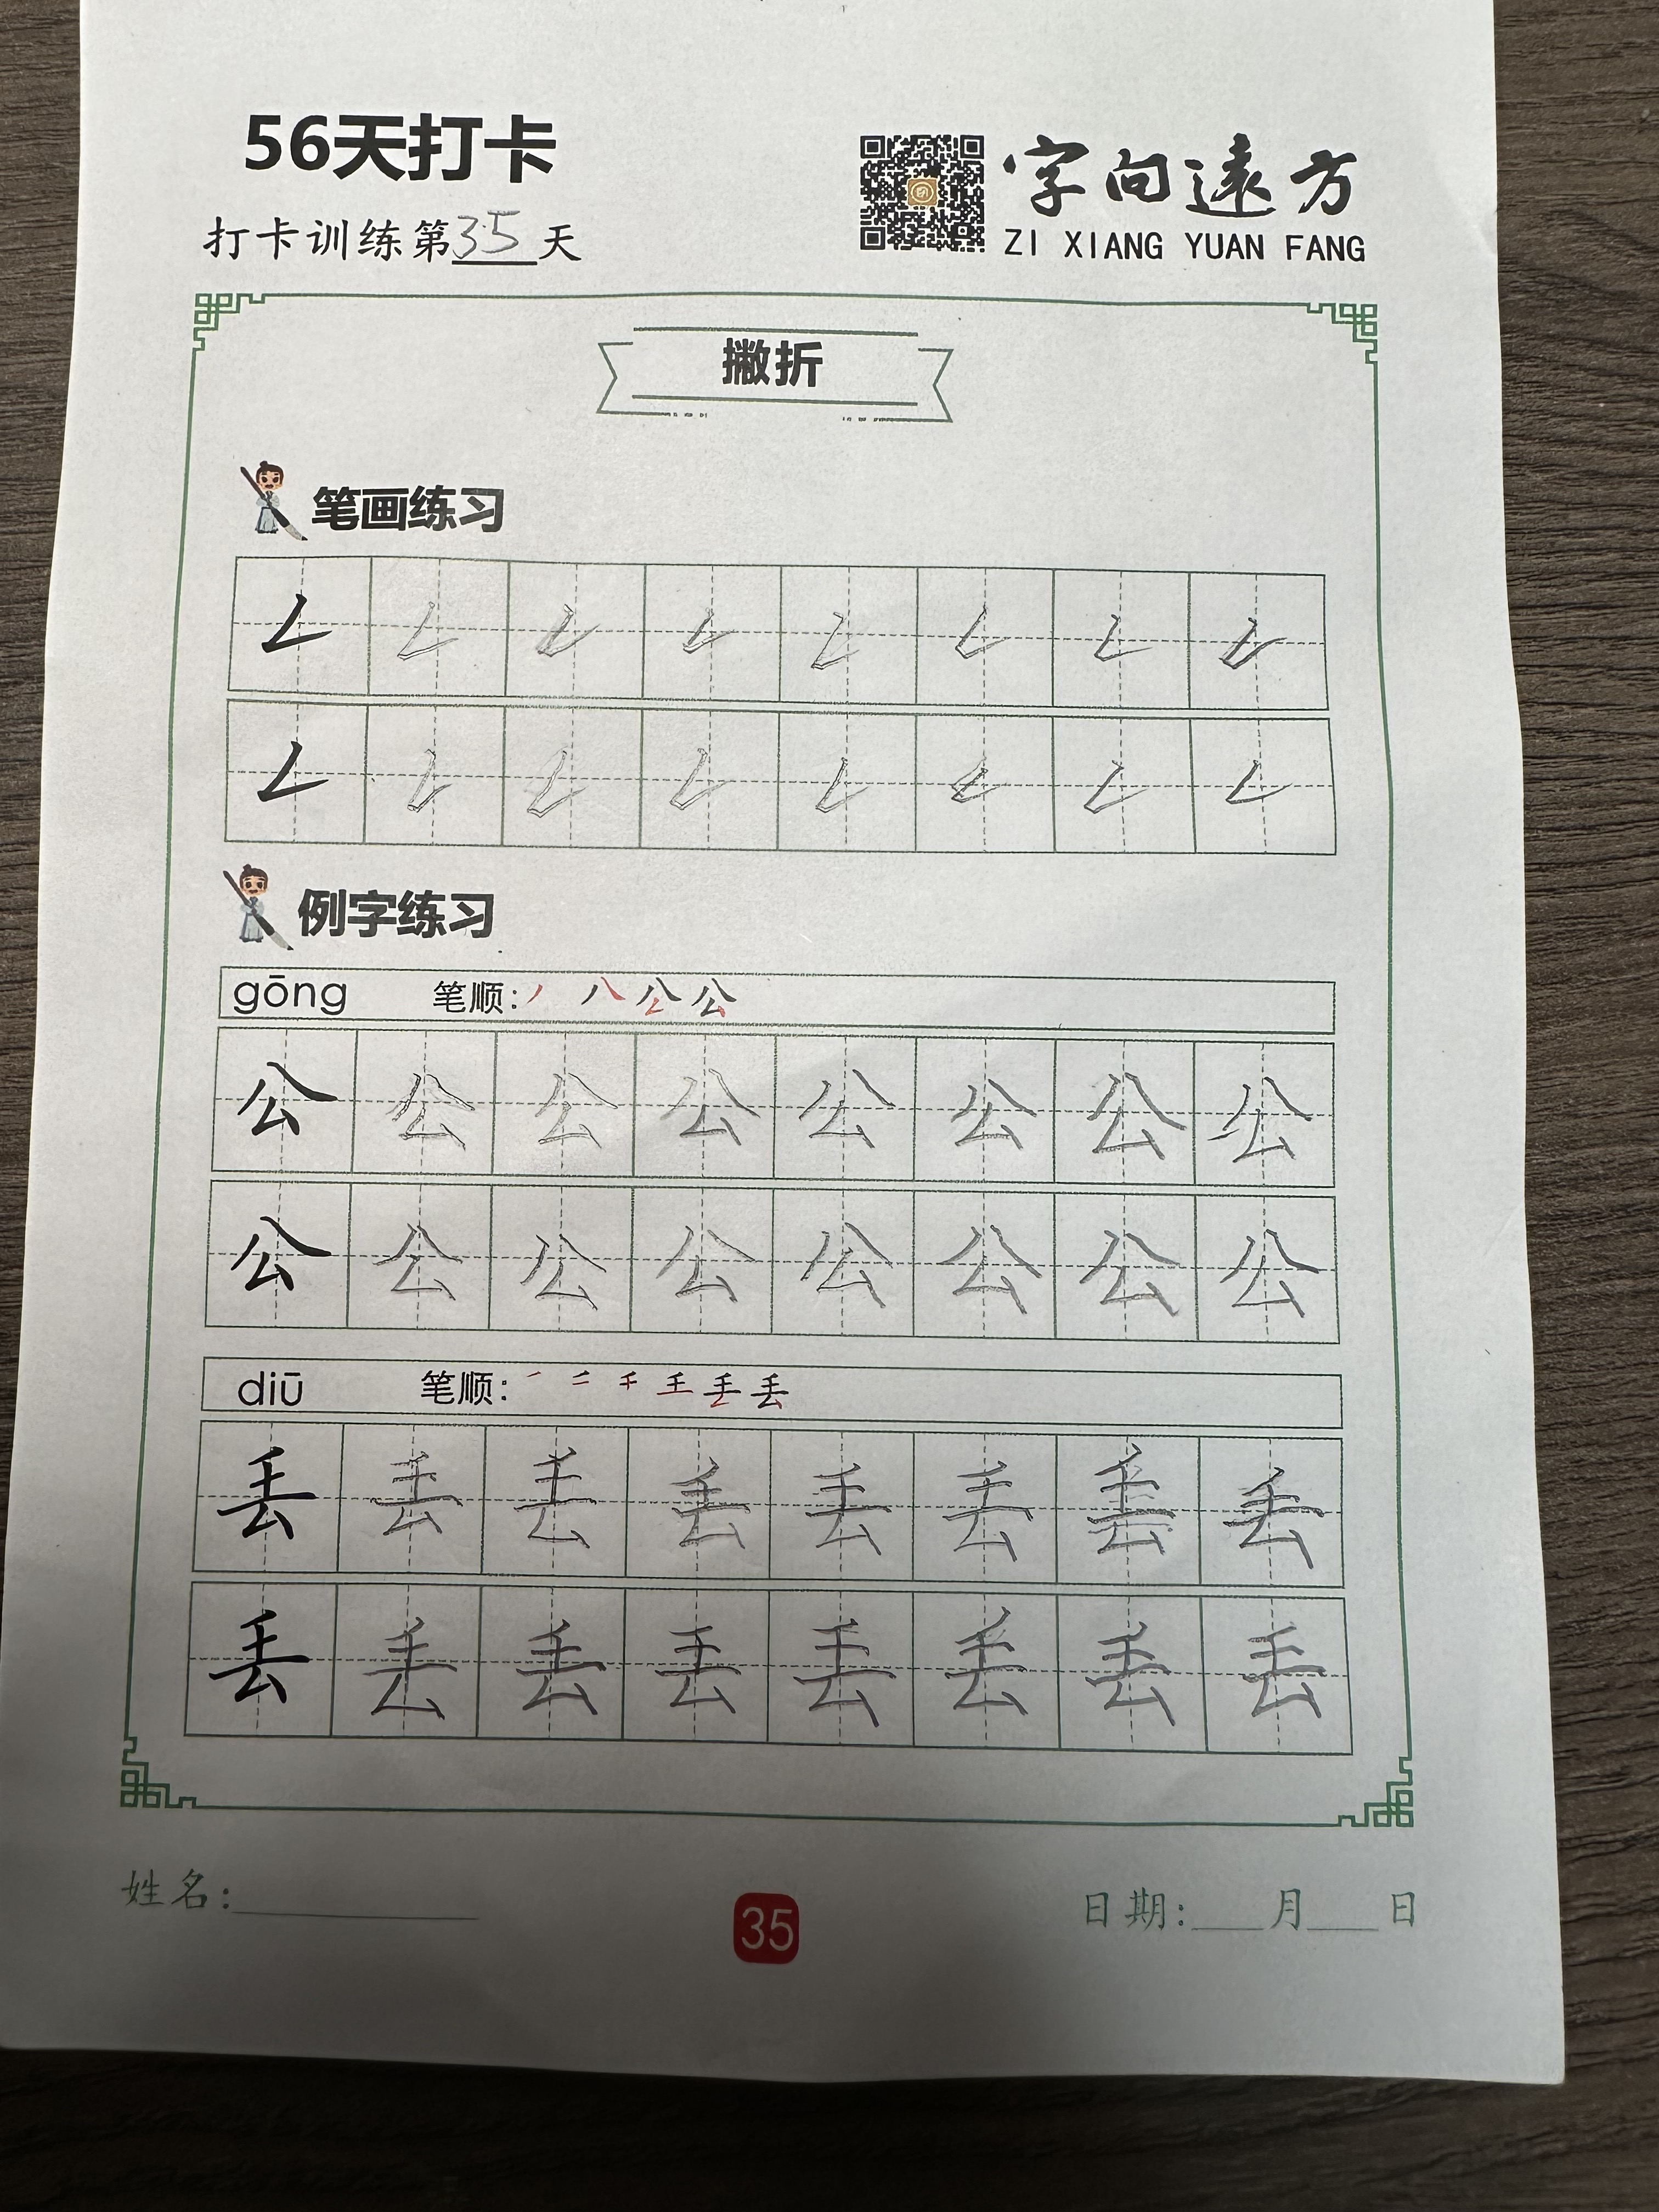 56天打卡
字向遠方
打卡训练第35天
ZI XIANG YUAN FANG
撇折
笔画练习
𠃋 𠃋 𠃋 𠃋 𠃋 𠃋 𠃋 𠃋
𠃋 𠃋 𠃋 𠃋 𠃋 𠃋 𠃋 𠃋
例字练习
gōng 笔顺:丿 八 公 公
公 公 公 公 公 公 公 公
公 公 公 公 公 公 公 公
diū 笔顺: 丢
丢 丢 丢 丢 丢 丢 丢 丢
丢 丢 丢 丢 丢 丢 丢 丢
姓名:
35
日期: 月 日